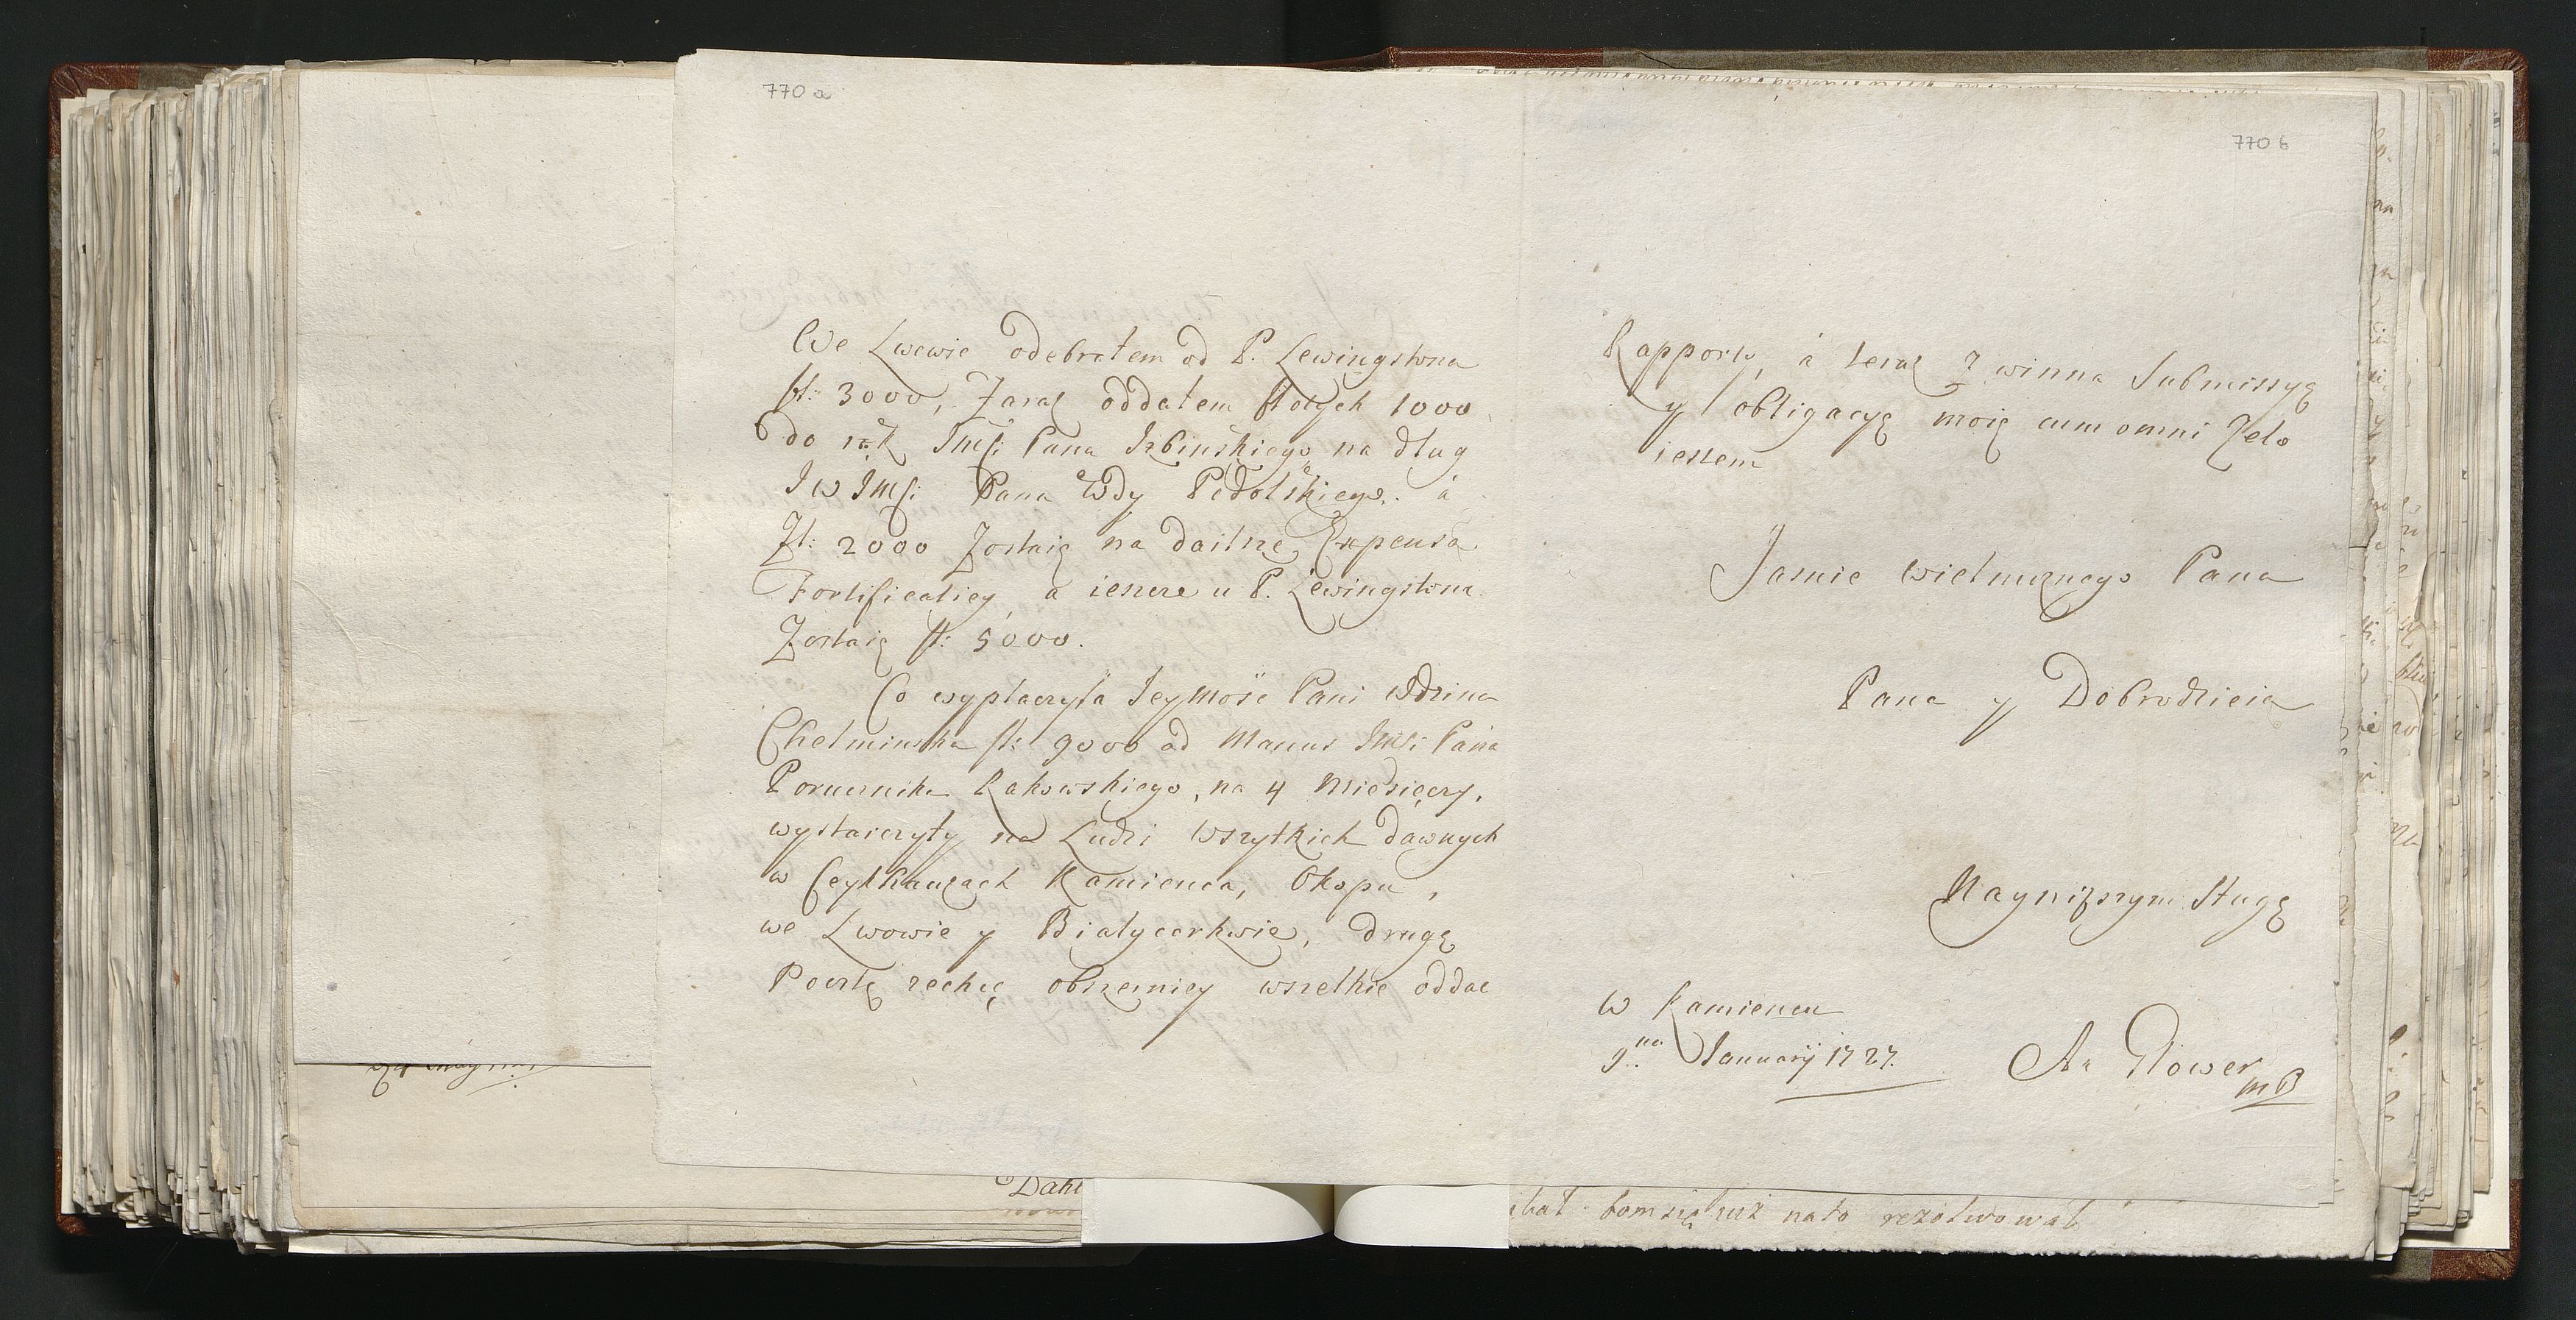 770 a
We Lwowie odebrałem od P. Lewingstona
fl: 3000, Zaraz oddałem fl otych 1000
do rąk Jmsci Pana Izbinskiego na dług
J W JMsci Pana Wdy Podolskiego. á
Zł: 2000 Zostaię na dailzę Expensa
Fortificatiey, a iescze u P. Lewingstona
Zostaię fl: 5000.
Co wypłaczyła Jeymość Pani Wdzina
Chelminska fl: 9000 ad Manus JMsci Pana
Porucznika Rakowskiego, na 4 Miesięcy,
wystarczyły na Ludzi wszytkich dawnych
w Ceykhauzach Kamienca, Okopu,
we Lwowie y Bialycerkwie, drugę
Pocztę zechcę obszerniey wszelkie oddac
770 b
Rapporty, á teraz z winna Submissyę
y obligacyę moię cum omni Zelo
iestem
Jasnie Wielmoznego Pana
Pana y Dobrodzieia
Nayniższym Sługę
W Kamiencu
9na January 1727.
An Glower
mp
Daht
bom się iuż nato rezolwował